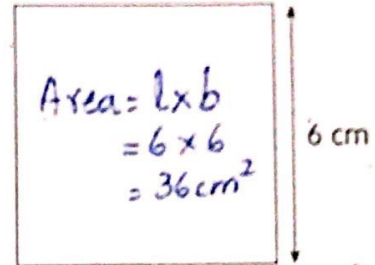 Area = l x b
= 6 x 6
= 36 cm²
6 cm